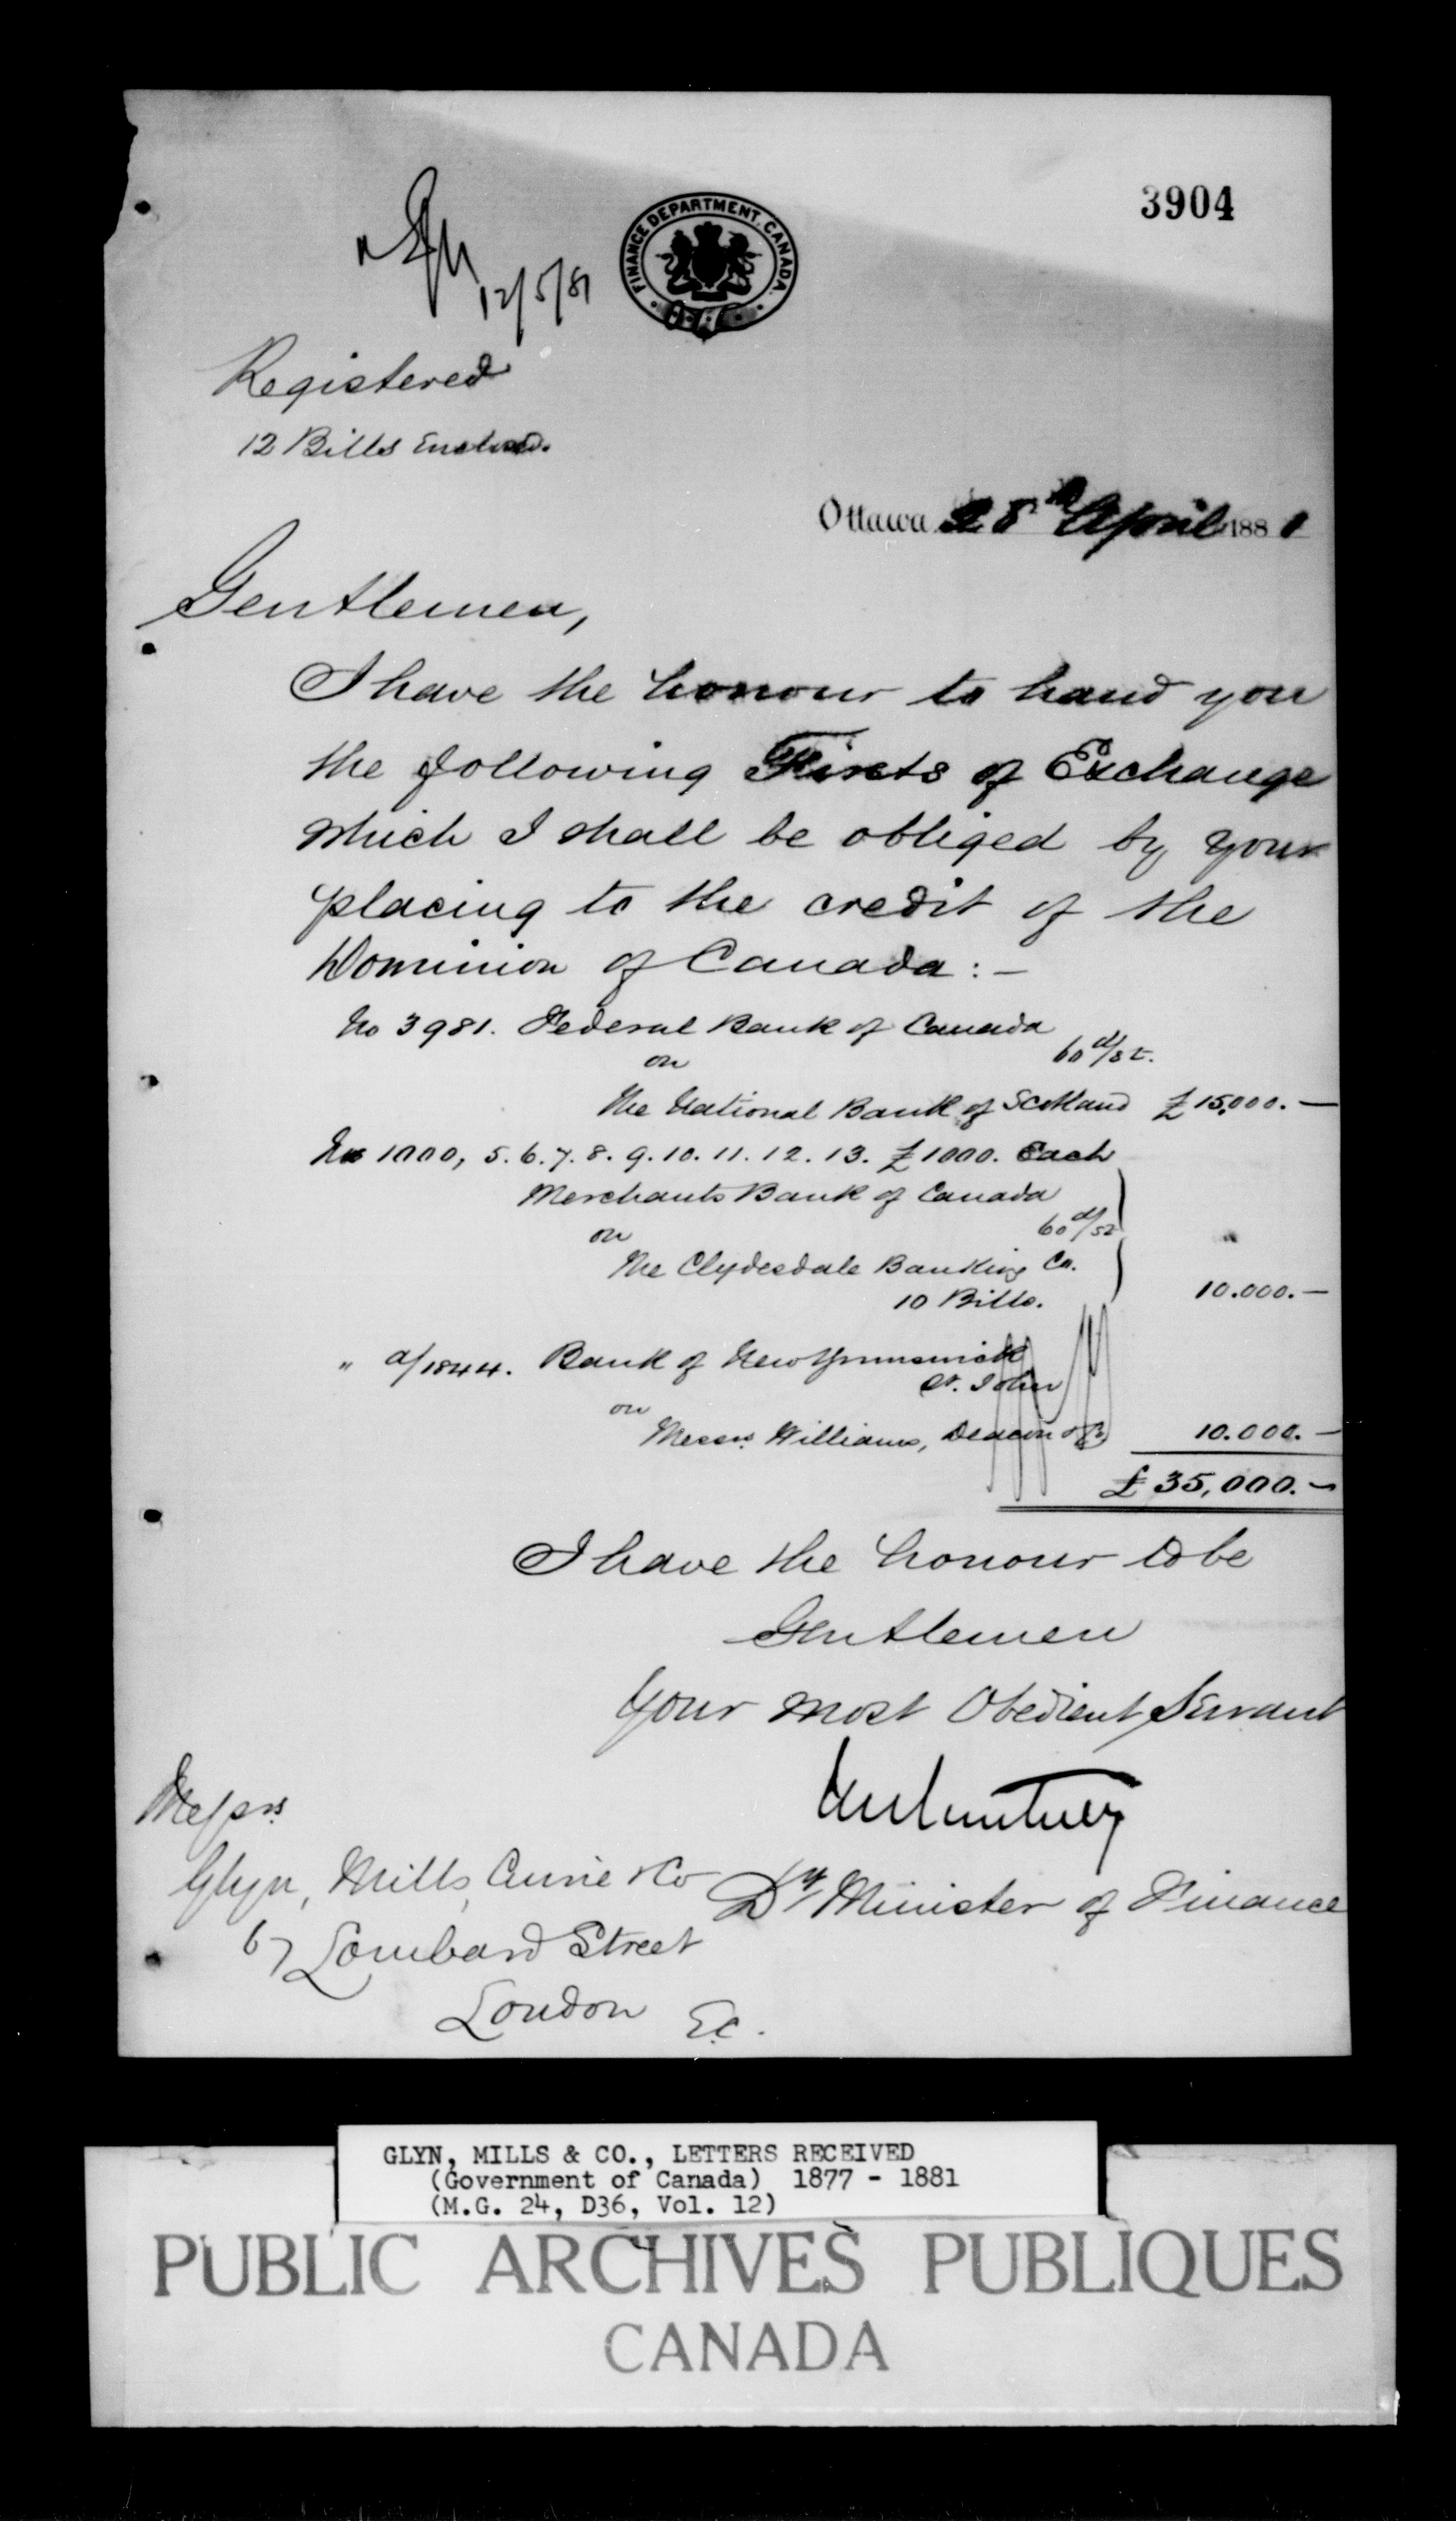 3904
FINANCE DEPARTMENT. CANADA.
12/5/81
Registered
12 Bills Enclosed.
Ottawa 28th April 1881
Gentlemen,
I have the honour to hand you
the following Firsts of Exchange
which I shall be obliged by your
placing to the credit of the
Dominion of Canada : —
No 3981. Federal Bank of Canada
on 60 d/st.
The National Bank of Scotland £15,000. —
Nos 1000, 5. 6. 7. 8. 9. 10. 11. 12. 13. £1000. Each
Merchants Bank of Canada
on 60 d/st
The Clydesdale Banking Co.
10 Bills. 10.000. —
" a/1844. Bank of New Brunswick
St. John
on
Messrs Williams, Deacon & Co 10.000. —
£ 35,000. —
I have the honour to be
Gentlemen
Your most Obedient Servant
Messrs
Glyn, Mills, Currie & Co
Dy Minister of Finance
67 Lombard Street
London E.C.
GLYN, MILLS & CO., LETTERS RECEIVED
(Government of Canada) 1877 - 1881
(M.G. 24, D36, Vol. 12)
PUBLIC ARCHIVES PUBLIQUES
CANADA